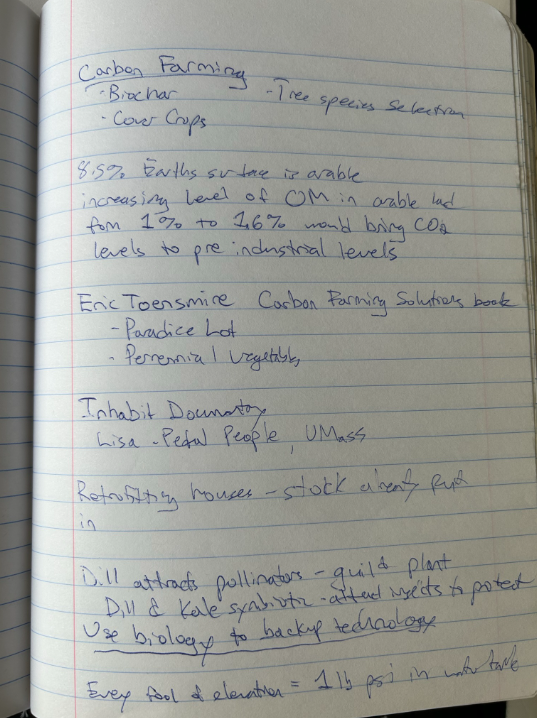 Carbon Farming
- Biochar - Tree species selection
- Cover Crops
8.5% Earths surface is arable
increasing level of OM in arable lad
fom 1% to 1.6% would bring CO2
levels to pre industrial levels
Eric Toensmire Carbon Farming Solutions book
- Paradice Lot
- Perrennial vegetables
Inhabit
Lisa - Pedal People, UMass
Retrofitting houses - stuck already put
in
Dill attracts pollinators - guild plant
Dill & Kale symbiotic - attract insects to protect
Use biology to backup technology
Every foot of elevation = 1 lb psi in water tank